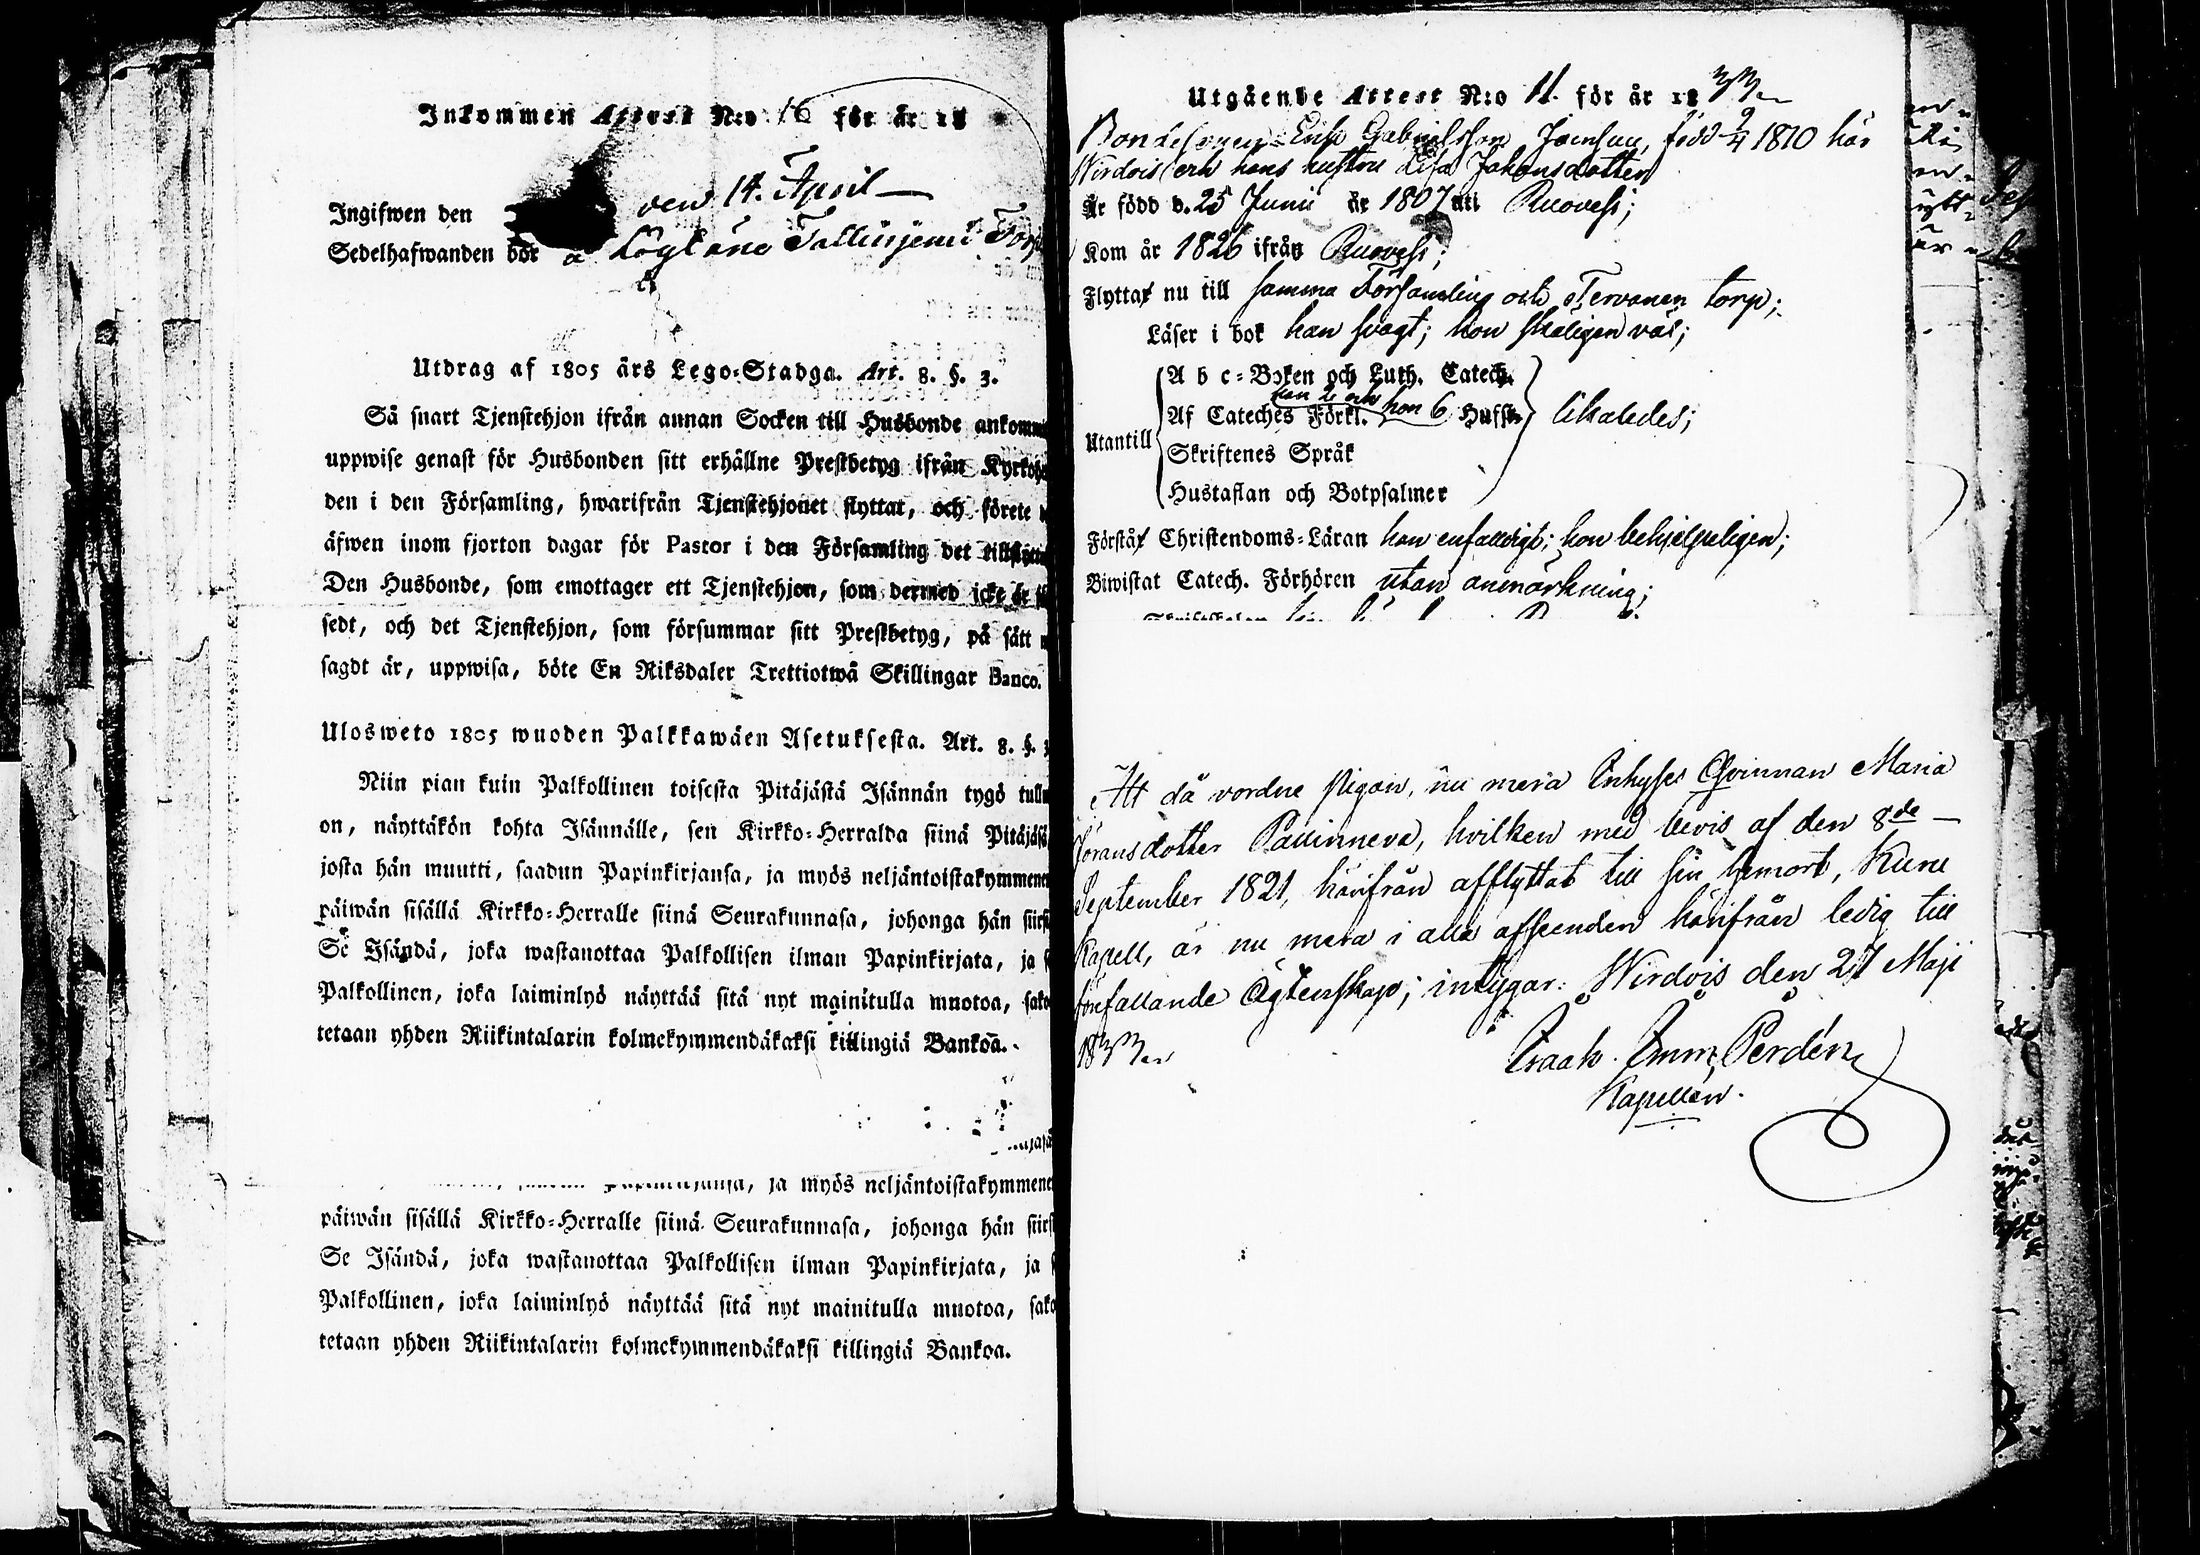 Inkommen Attest N:o 16 för år 18
Ingifwen den den 14. April
Sedelhafwanden bör
Utdrag af 1805 års Lego-Stadga. Art. 8. §. 3.
Så snart Tjenstehjon ifrån annan Socken till Husbonde ankomm
uppwise genast för Husbonden sitt erhållne Prestbetyg ifrån Kyrkohe
den i den Församling, hwarifrån Tjenstehjonet flyttat, och förete
äfwen inom fjorton dagar för Pastor i den Församling det tillflytta
Den Husbonde, som emottager ett Tjenstehjon, som dermed icke är
sedt, och det Tjenstehjon, som försummar sitt Prestbetyg, på sätt
sagdt är, uppwisa, böte En Riksdaler Trettiotwå Skillingar Banco.
Ulosweto 1805 wuoden Palkkawäen Asetuksesta. Art. 8. §. 3
Niin pian kuin Palkollinen toisesta Pitäjästä Isännän tygö tullu
on, näyttäkön kohta Isännälle, sen Kirkko-Herralda siinä Pitäjäsä
josta hän muutti, saadun Papinkirjansa, ja myös neljäntoistakymmene
päiwän sisällä Kirkko-Herralle siinä Seurakunnasa, johonga hän siirs
Se Isändä, joka wastanottaa Palkollisen ilman Papinkirjata, ja s
Palkollinen, joka laiminlyö näyttää sitä nyt mainitulla muotoa, sako
tetaan yhden Riikintalarin kolmekymmendäkaksi killingiä Bankoa.
ja myös neljäntoistakymmene
päiwän sisällä Kirkko-Herralle siinä Seurakunnasa, johonga hän siirs
Se Isändä, joka wastanottaa Palkollisen ilman Papinkirjata, ja s
Palkollinen, joka laiminlyö näyttää sitä nyt mainitulla muotoa, sako
tetaan yhden Riikintalarin kolmekymmendäkaksi killingiä Bankoa.
Utgående Attest N:o 11. för år 1833
Bondesonen Erik Gabrielsson Jämsän, född 9/4 1810 här
Wirdois och hans hustru Lisa Johansdotter
Är född d. 25 Junii år 1807 uti Ruovesi;
Kom år 1826 ifrån Ruovesi;
Flytta nu till samma Församling och Tervanen torp;
Läser i bok han svagt; hon skäligen väl;
Utantill
A b c-Boken och Luth. Catech.
Af Cateches Förkl. han 2 och hon 6 Hufst. likaledes;
Skriftenes Språk
Hustaflan och Botpsalmer
Förstå Christendoms-Läran han enfaldigt; hon behjelpeligen;
Biwistat Catech. Förhören utan anmärkning;
Att då vordne Pigan, nu mera Inhyses Qvinnan Maria
Göransdotter Pallinneva, hvilken med bevis af den 8de
September 1821, härifrån afflyttat till sin hemort, Kuru
Kapell, är nu mera i alla afseenden härifrån ledig till
förefallande Ägtenskap; intygar. Wirdois den 27 Maji
1833
Isaak. Imm. Perdén
Kapellan.